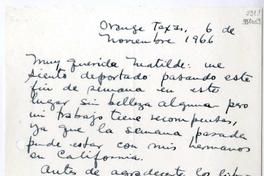 Orange Texas, 6 de
Noviembre 1966
Muy querida Matilde: me
siento deportado pasando este
fin de semana en este
lugar sin belleza alguna pero
mi trabajo tiene recompensas,
ya que la semana pasada
pude estar con mis hermanos
en California.
Antes de agradecerte los